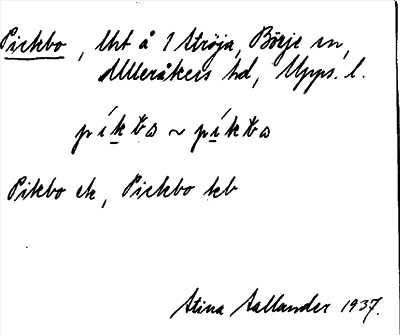 Pickbo, lht å 1 Ströja, Börje sn,
Ulleråkers hd, Upps. l.
píkbo ~ píkbo
Pikbo ek, Pickbo kb
Stina Sallander 1937.